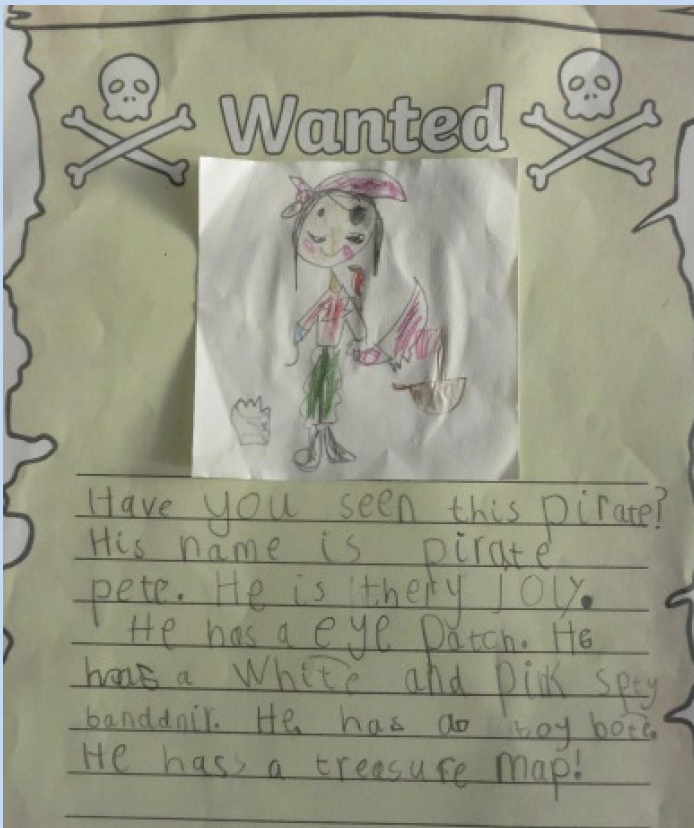 Wanted
Have you seen this pirate?
His name is pirate
pete. He is thery joly.
He has a eye patch. He
has a White and pink spty
banddnir. He has a toy bote.
He hass a treasure map!